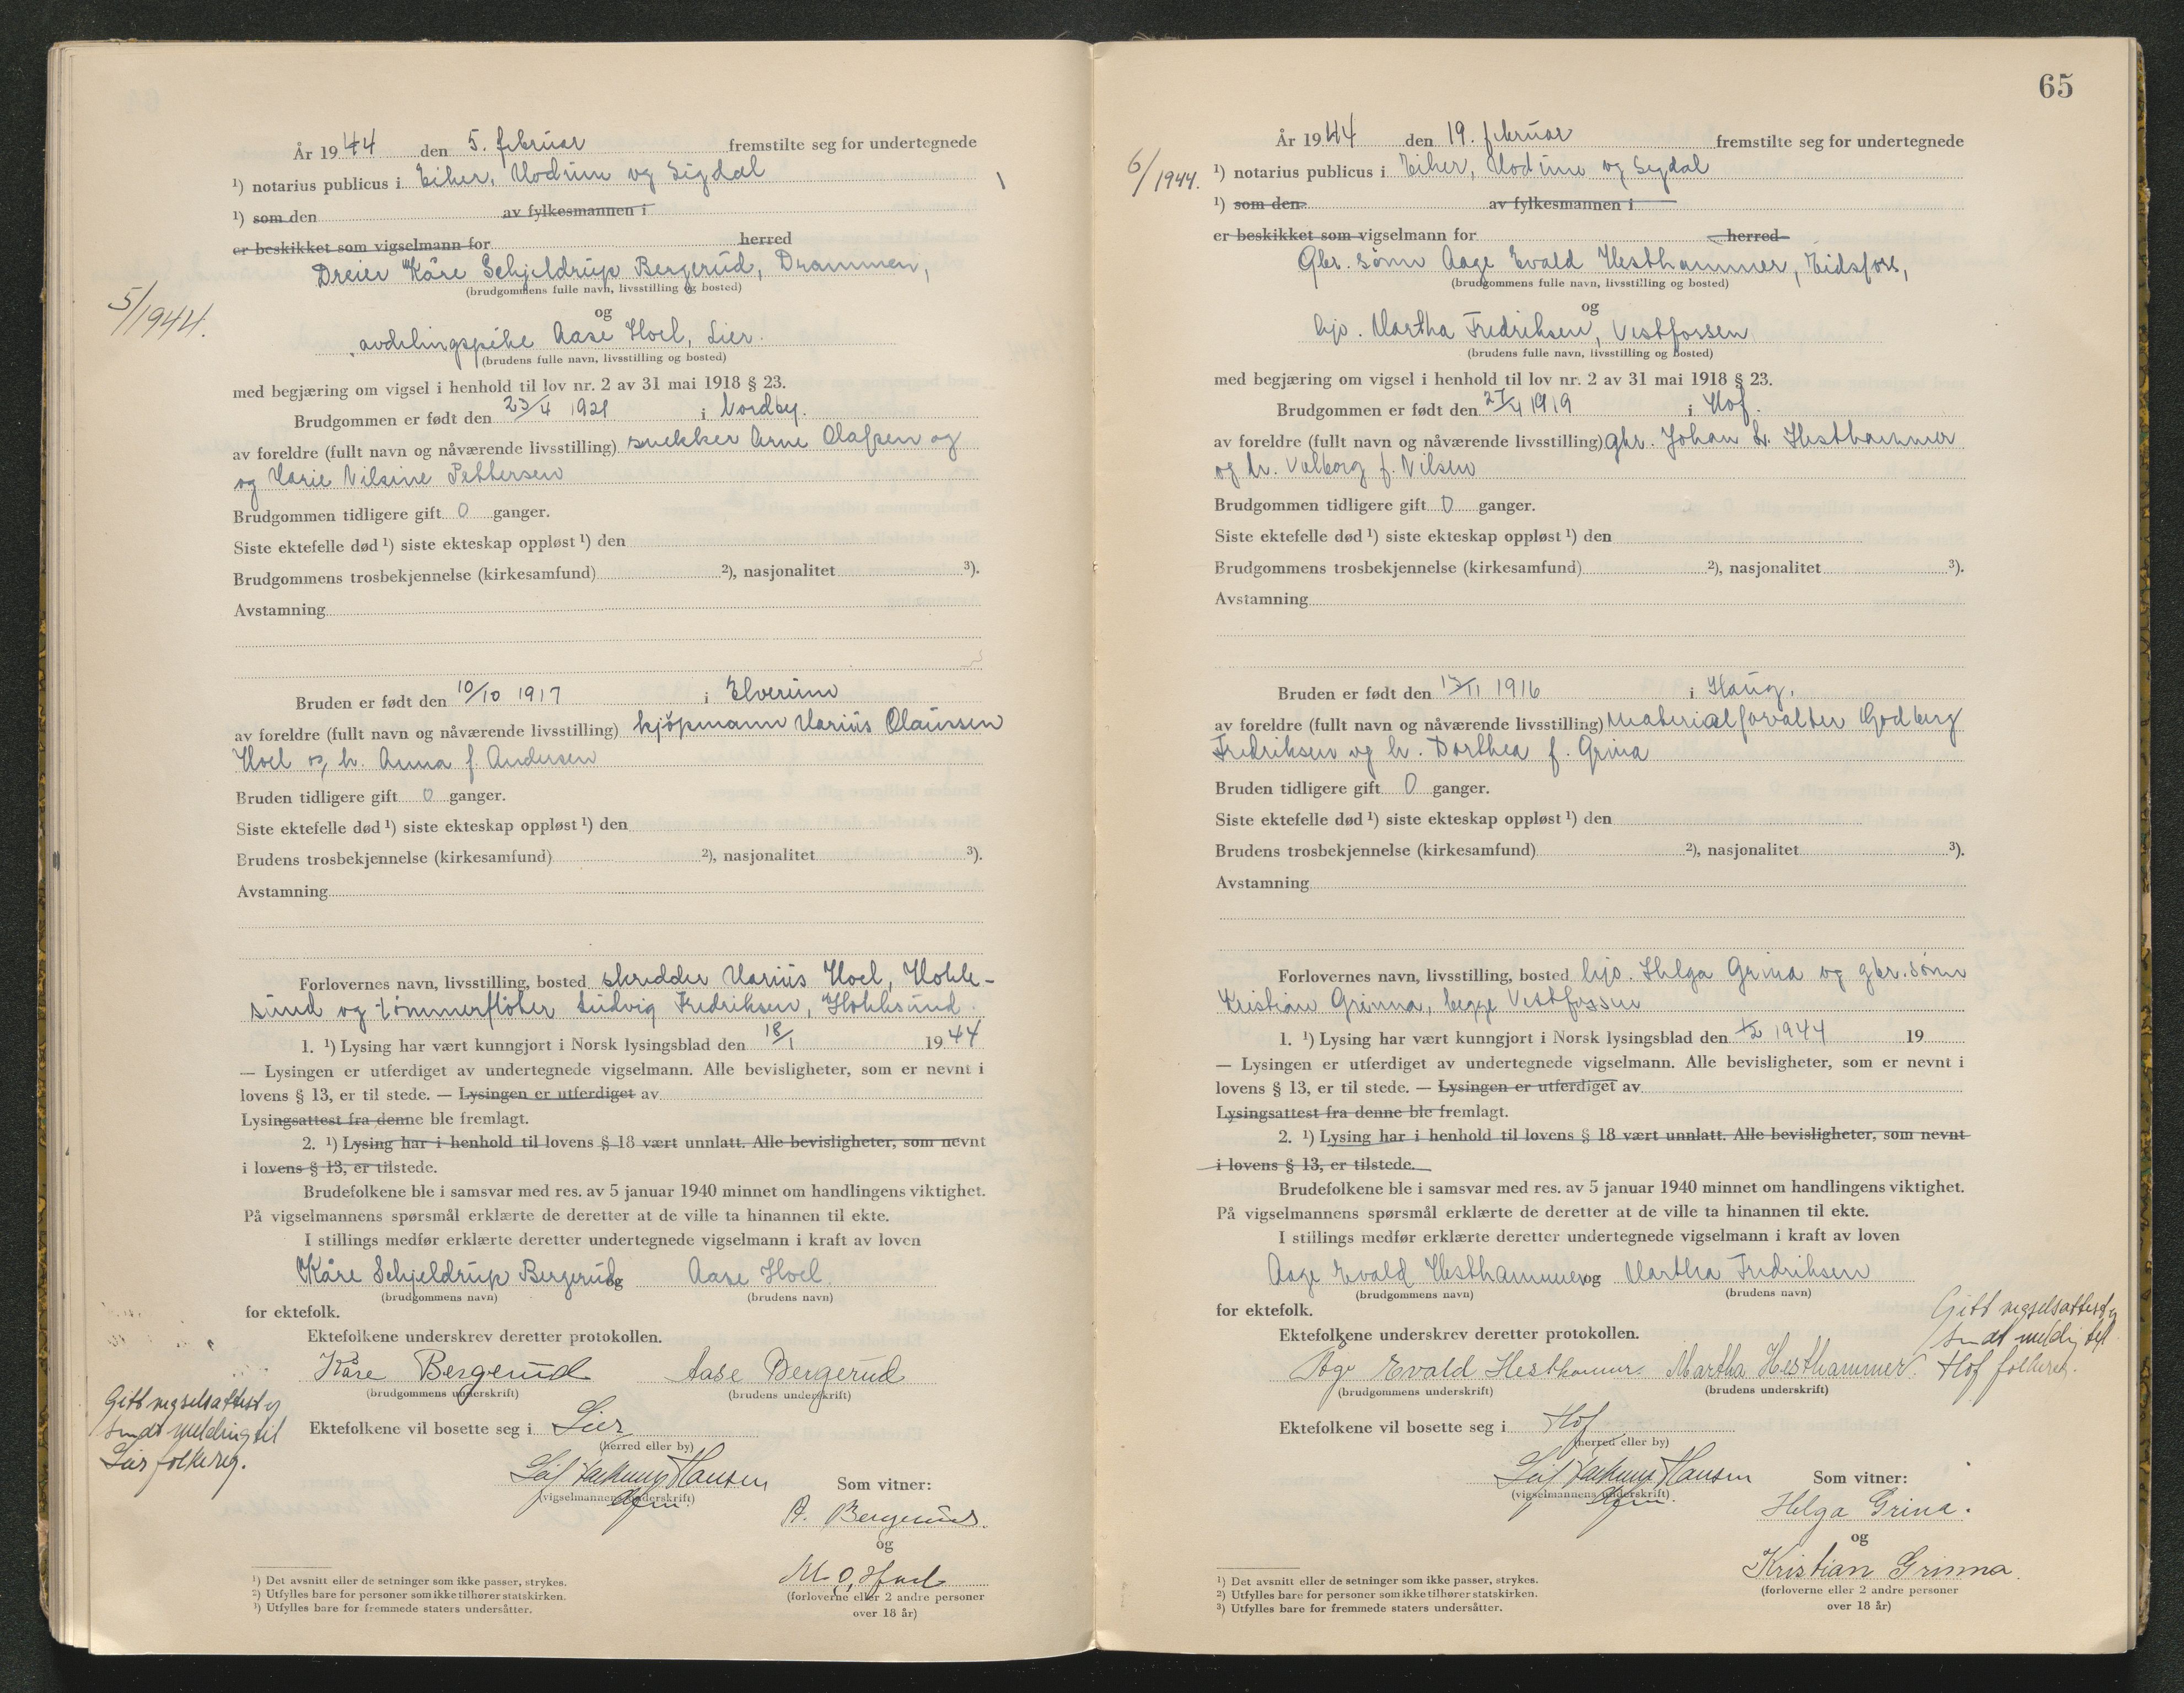 År 1944 den 5. februar fremstilte seg for undertegnede
¹) notarius publicus i Eiker, Modum og Sigdal
¹) som den av fylkesmannen i
er beskikket som vigselmann for herred
Dreier Kåre Schjeldrup Bergerud, Drammen,
(brudgommens fulle navn, livsstilling og bosted)
5/1944.
og
avdelingspike Aase Hoel, Lier.
(brudens fulle navn, livsstilling og bosted)
med begjæring om vigsel i henhold til lov nr. 2 av 31 mai 1918 § 23.
Brudgommen er født den 23/4 1921 i Nordby.
av foreldre (fullt navn og nåværende livsstilling) snekker Arne Olafsen og
og Marie Nilsine Pettersen
Brudgommen tidligere gift 0 ganger.
Siste ektefelle død ¹) siste ekteskap oppløst ¹) den
Brudgommens trosbekjennelse (kirkesamfund) ²), nasjonalitet ³).
Avstamning
Bruden er født den 10/10 1917 i Elverum
av foreldre (fullt navn og nåværende livsstilling) kjøpmann Marius Olaussen
Hoel og h. Anna f. Andersen
Bruden tidligere gift 0 ganger.
Siste ektefelle død ¹) siste ekteskap oppløst ¹) den
Brudens trosbekjennelse (kirkesamfund) ²), nasjonalitet ³).
Avstamning
Forlovernes navn, livsstilling, bosted skredder Marius Hoel, Hokk-
sund og tømmerfløter Ludvig Fredriksen, Hokksund.
1. ¹) Lysing har vært kunngjort i Norsk lysingsblad den 18/1 1944
— Lysingen er utferdiget av undertegnede vigselmann. Alle bevisligheter, som er nevnt i
lovens § 13, er til stede. — Lysingen er utferdiget av
Lysingsattest fra denne ble fremlagt.
2. ¹) Lysing har i henhold til lovens § 18 vært unnlatt. Alle bevisligheter, som nevnt
i lovens § 13, er tilstede.
Brudefolkene ble i samsvar med res. av 5 januar 1940 minnet om handlingens viktighet.
På vigselmannens spørsmål erklærte de deretter at de ville ta hinannen til ekte.
I stillings medfør erklærte deretter undertegnede vigselmann i kraft av loven
Kåre Schjeldrup Bergerud og Aase Hoel
(brudgommens navn) (brudens navn)
for ektefolk.
Ektefolkene underskrev deretter protokollen.
Kåre Bergerud Aase Bergerud
(brudgommens underskrift) (brudens underskrift)
Gitt vigselsattest og
sendt melding til
Lier folkereg.
Ektefolkene vil bosette seg i Lier
(herred eller by)
Hansen
(vigselmannens underskrift)
Som vitner:
A. Bergerud.
og
M. O. Hoel
(forloverne eller 2 andre personer
over 18 år)
¹) Det avsnitt eller de setninger som ikke passer, strykes.
²) Utfylles bare for personer som ikke tilhører statskirken.
³) Utfylles bare for fremmede staters undersåtter.
65
År 1944 den 19. februar fremstilte seg for undertegnede
6/1944.
¹) notarius publicus i Eiker, Modum og Sigdal
¹) som den av fylkesmannen i
er beskikket som vigselmann for herred
Gbr. sønn Aage Evald Hesthammer, Eidsfoss,
(brudgommens fulle navn, livsstilling og bosted)
og
hjv. Martha Fredriksen, Vestfossen
(brudens fulle navn, livsstilling og bosted)
med begjæring om vigsel i henhold til lov nr. 2 av 31 mai 1918 § 23.
Brudgommen er født den 27/4 1919 i Hof.
av foreldre (fullt navn og nåværende livsstilling) gbr. Johan L. Hesthammer
og h. Valborg f. Nilsen
Brudgommen tidligere gift 0 ganger.
Siste ektefelle død ¹) siste ekteskap oppløst ¹) den
Brudgommens trosbekjennelse (kirkesamfund) ²), nasjonalitet ³).
Avstamning
Bruden er født den 13/11 1916 i Haug.
av foreldre (fullt navn og nåværende livsstilling) materialforvalter Godberg
Fredriksen og h. Dorthea f. Grina
Bruden tidligere gift 0 ganger.
Siste ektefelle død ¹) siste ekteskap oppløst ¹) den
Brudens trosbekjennelse (kirkesamfund) ²), nasjonalitet ³).
Avstamning
Forlovernes navn, livsstilling, bosted hjv. Helga Grina og gbr. sønn
Kristian Grinna, begge Vestfossen
1. ¹) Lysing har vært kunngjort i Norsk lysingsblad den 1/2 1944 19
— Lysingen er utferdiget av undertegnede vigselmann. Alle bevisligheter, som er nevnt i
lovens § 13, er til stede. — Lysingen er utferdiget av
Lysingsattest fra denne ble fremlagt.
2. ¹) Lysing har i henhold til lovens § 18 vært unnlatt. Alle bevisligheter, som nevnt
i lovens § 13, er tilstede.
Brudefolkene ble i samsvar med res. av 5 januar 1940 minnet om handlingens viktighet.
På vigselmannens spørsmål erklærte de deretter at de ville ta hinannen til ekte.
I stillings medfør erklærte deretter undertegnede vigselmann i kraft av loven
Aage Evald Hesthammer og Martha Fredriksen
(brudgommens navn) (brudens navn)
for ektefolk.
Gitt vigselsattest og
sendt meldig til
Hof folkereg.
Ektefolkene underskrev deretter protokollen.
Åge Evald Hesthammer. Martha Hesthammer.
(brudgommens underskrift) (brudens underskrift)
Ektefolkene vil bosette seg i Hof
(herred eller by)
Hansen
(vigselmannens underskrift)
Som vitner:
Helga Grina.
og
Kristian Grinna.
(forloverne eller 2 andre personer
over 18 år)
¹) Det avsnitt eller de setninger som ikke passer, strykes.
²) Utfylles bare for personer som ikke tilhører statskirken.
³) Utfylles bare for fremmede staters undersåtter.